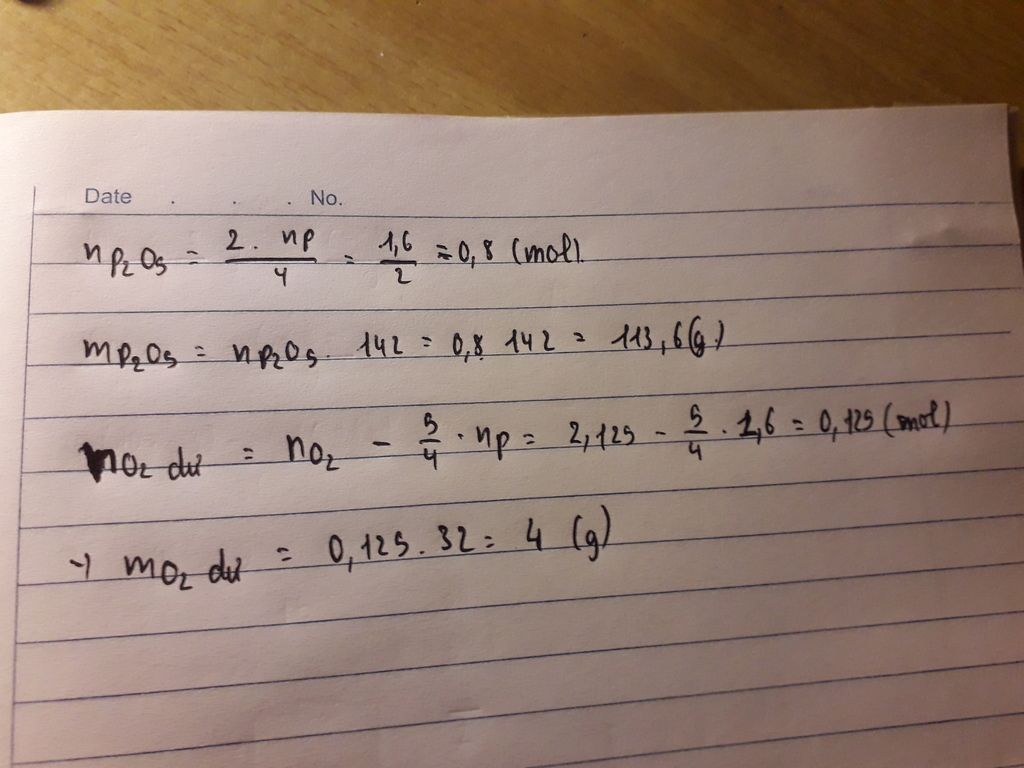 Date . . . No.
nP₂O₅ = 2 . nP / 4 = 1,6 / 2 = 0,8 (mol).
mP₂O₅ = nP₂O₅ . 142 = 0,8 . 142 = 113,6(g)
nO₂ dư = nO₂ - 5/4 . nP = 2,125 - 5/4 . 1,6 = 0,125 (mol)
→ mO₂ dư = 0,125 . 32 = 4 (g)